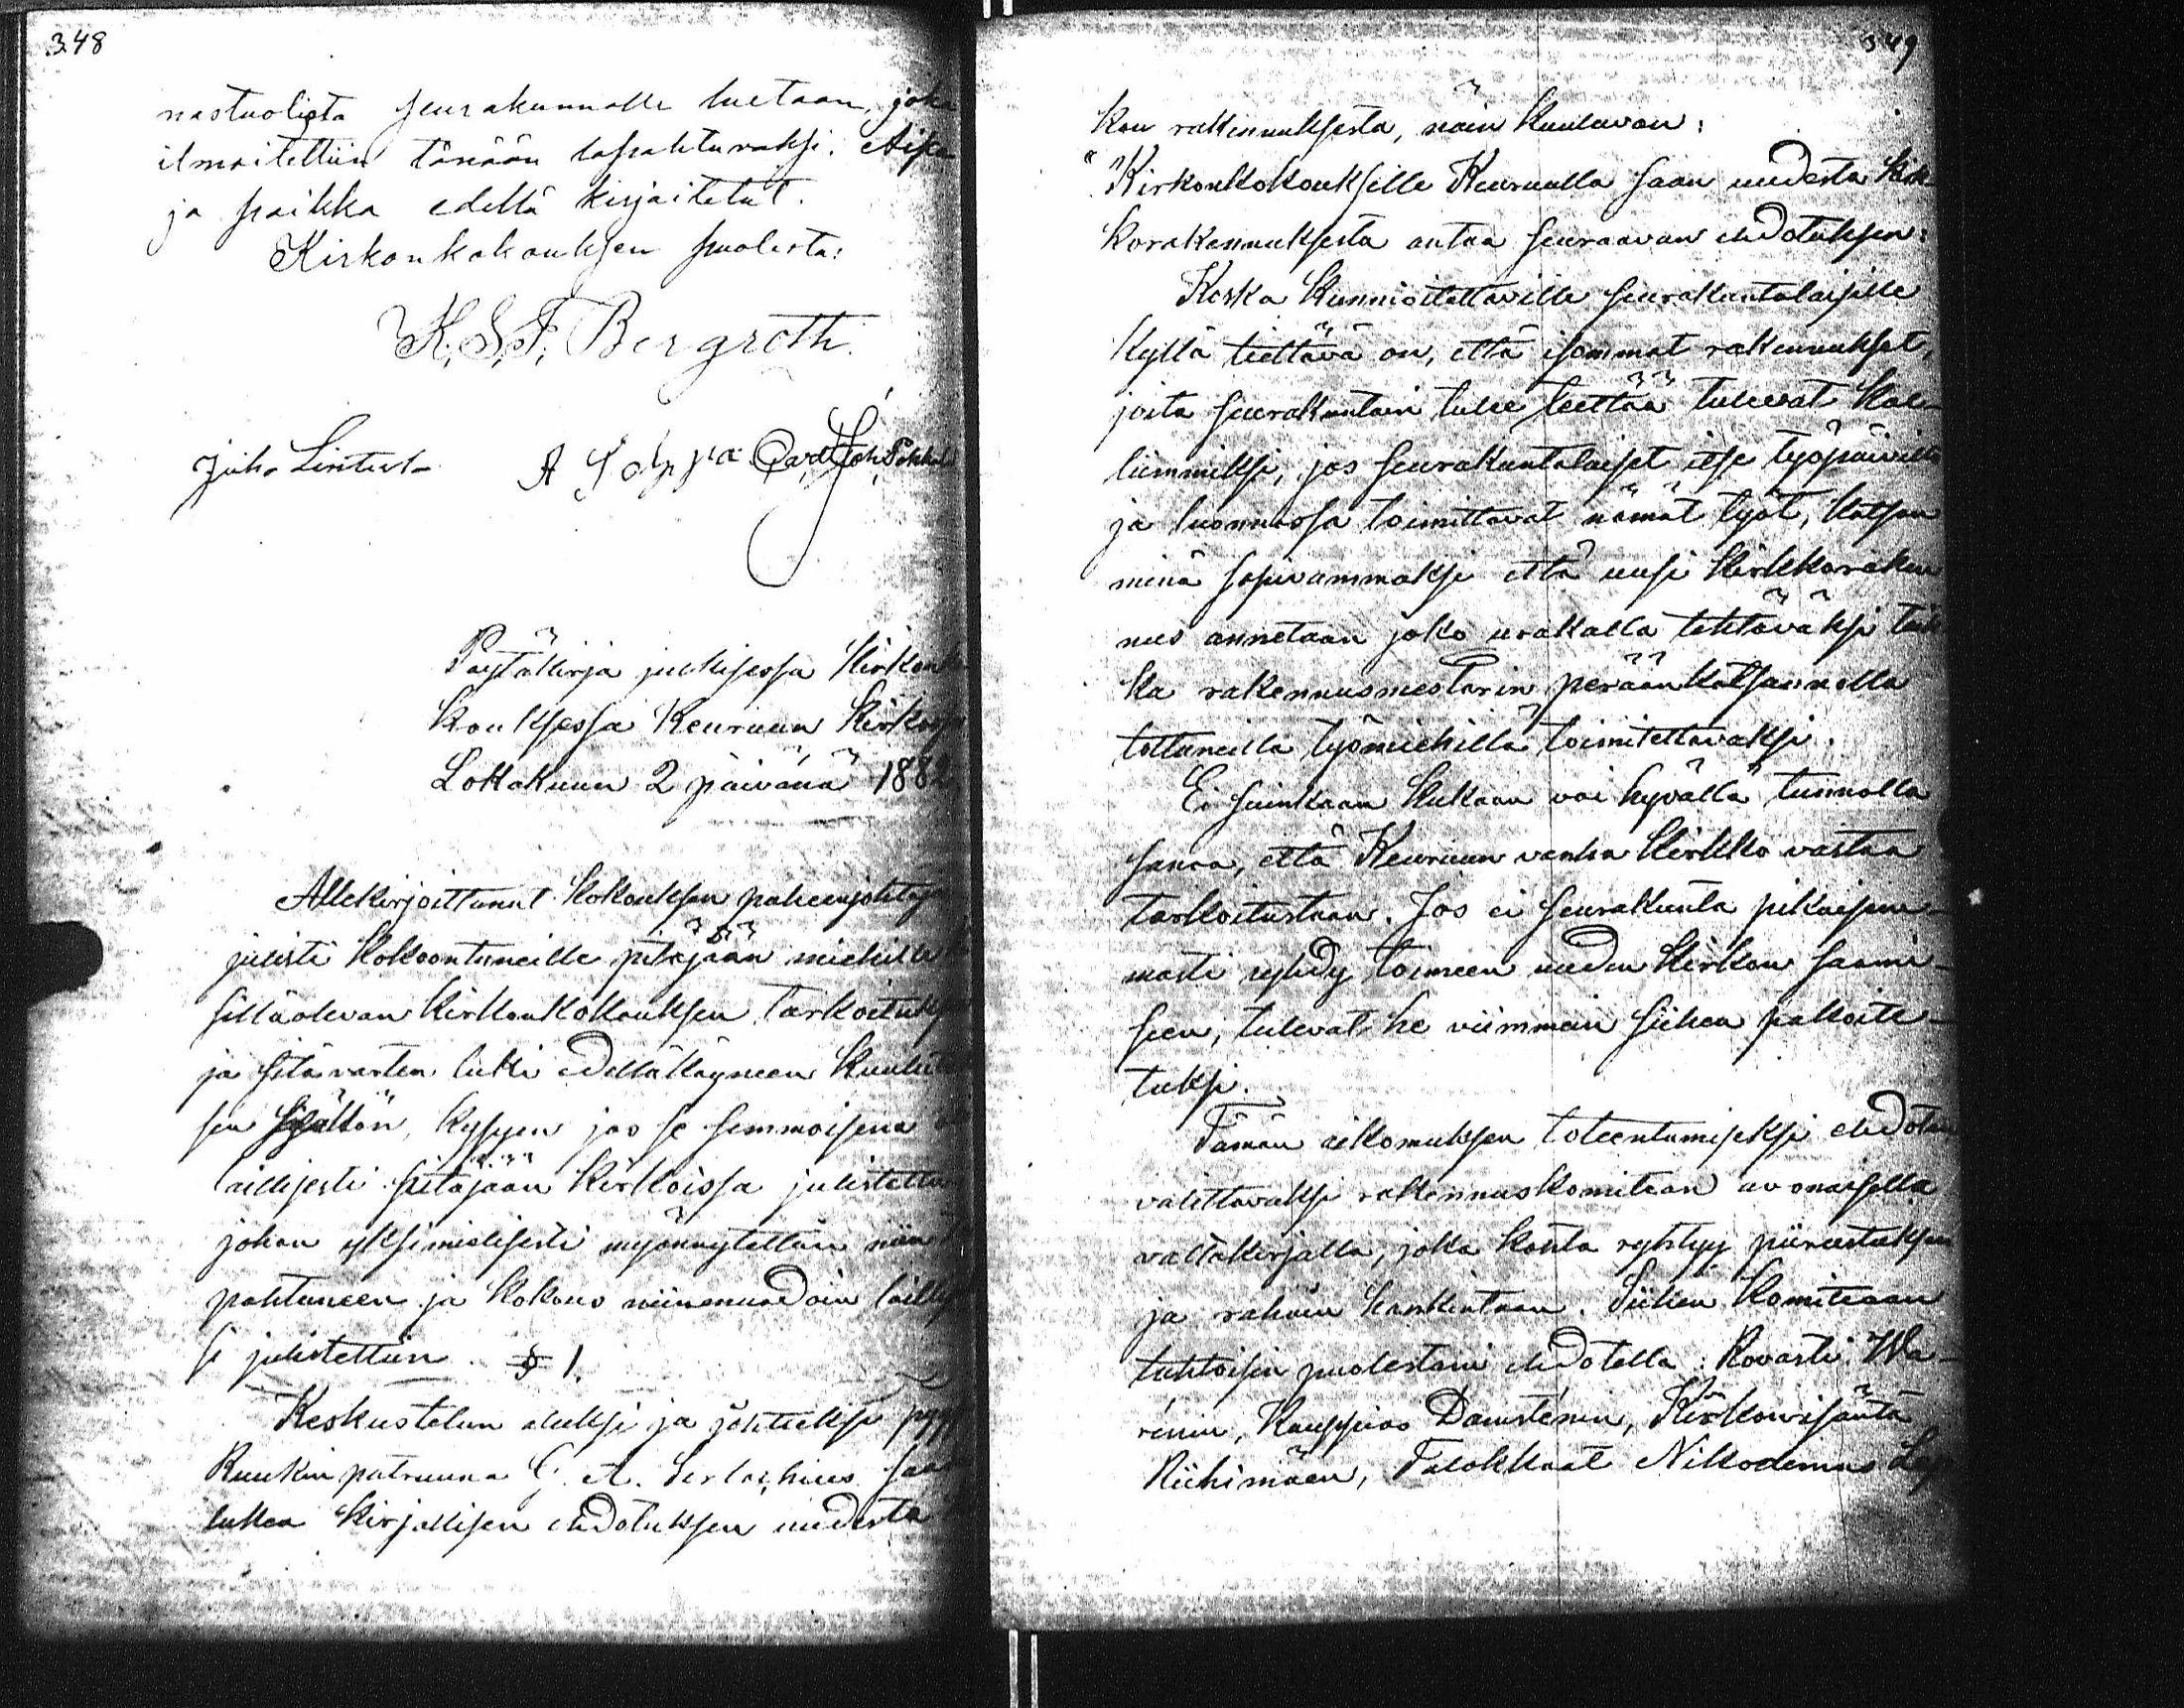 348
nastuolista seurakunnalle luetaan, joka
ilmoitettiin tänään tapahtuvaksi. Aika
ja paikka edellä kirjoitetut.
Kirkonkokouksen puolesta:
K. S. F. Bergroth.
Juho
Pöytäkirja julkisessa Kirkonko
kouksessa Keuruun
Lokakuun 2 päivänä 188
Allekirjoittanut Kokouksen puheenjohtaja
julisti Kokoontuneille pitäjään miehille
silläolevan Kirkonkokouksen tarkoituksen
ja sitä varten luki edelläkäyneen Kuulutuk
sen sisällön, kysyen jos se semmoisena
laillisesti pitäjään Kirkoissa julistettu
johon yksimielisesti myönnytettiin niin ta
pahtuneen ja Kokous niinmuodoin
si julistettiin. § 1.
Keskustelun aluksi ja johteeksi pyysi
Ruukin patruuna G. A. Serlachius saada
lukea Kirjallisen ehdotuksen uudesta
349
kon rakennuksesta, näin kuuluvan:
"Kirkonkokoukselle Keuruulla saan uudesta Kirk-
korakennuksesta antaa seuraavan ehdotuksen:
Koska Kunnioitettaville seurakuntalaisille
Kyllä tiettävä on, että isommat rakennukset,
joita seurakuntain tulee teettää tulevat Kal-
liimmiksi, jos seurakuntalaiset itse työpäivillä
ja luonnossa toimittavat nämät työt, Katson
minä sopivammaksi että uusi Kirkkoraken
nus annetaan joko urakalla tehtäväksi taik
ka rakennusmestarin perään katsannolla
tottuneilla työmiehillä toimitettavaksi.
Ei suinkaan Kukaan voi hyvällä tunnolla
sanoa, että Keuruun vanha Kirkko vastaa
tarkoitustaan. Jos ei seurakunta pikaisem-
masti ryhdy toimeen uuden Kirkon saami-
seen, tulevat he viimmein siihen pakoite-
tuksi.
Tämän aikomuksen toteentumiseksi ehdotan
valittavaksi rakennuskomitean avonaisella
valtakirjalla, joka kohta ryhtyy piirustuksen
ja rahain hankintaan. Siihen Komiteaan
tahtoisin puolestani ehdotella: Rovasti Wa-
renin, Kauppias Damsténin, Kirkonisäntä
Riihimäen, Talokkaat Nikodemus